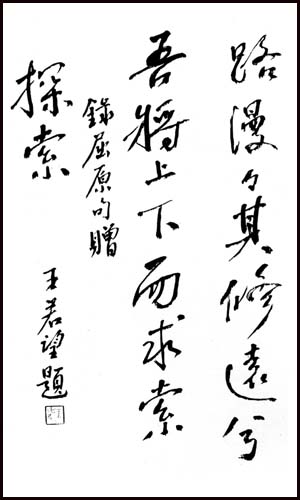 路漫々其修遠兮
吾將上下而求索
錄屈原句贈
探索
王若望題